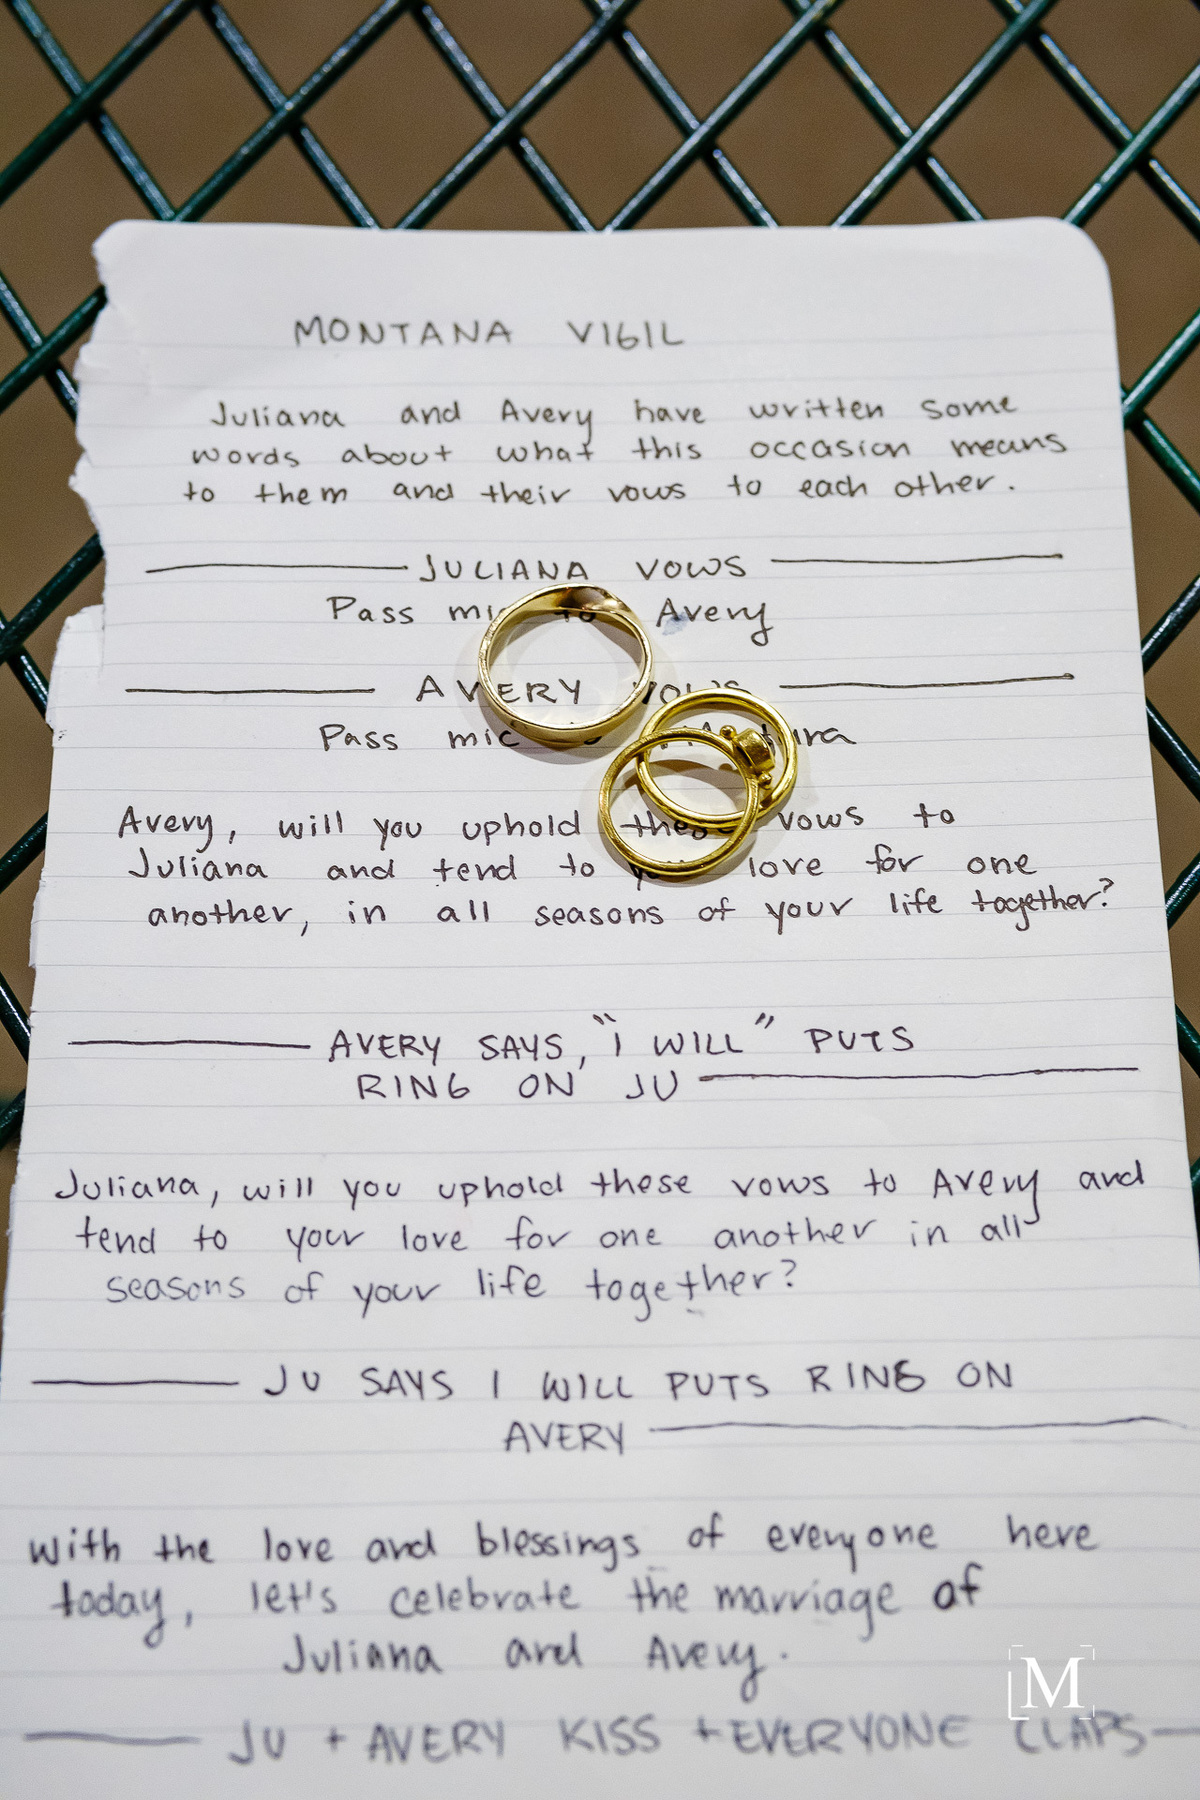 MONTANA VIGIL
Juliana and Avery have written some
words about what this occasion means
to them and their vows to each other.
JULIANA VOWS
Pass mic to Avery
AVERY VOWS
Pass mic
Avery, will you uphold these vows to
Juliana and tend to your love for one
another, in all seasons of your life together?
AVERY SAYS, "I WILL" PUTS
RING ON JU
Juliana, will you uphold these vows to Avery and
tend to your love for one another in all
seasons of your life together?
JU SAYS I WILL PUTS RING ON
AVERY
with the love and blessings of everyone here
today, let's celebrate the marriage of
Juliana and Avery.
JU + AVERY KISS + EVERYONE CLAPS
M